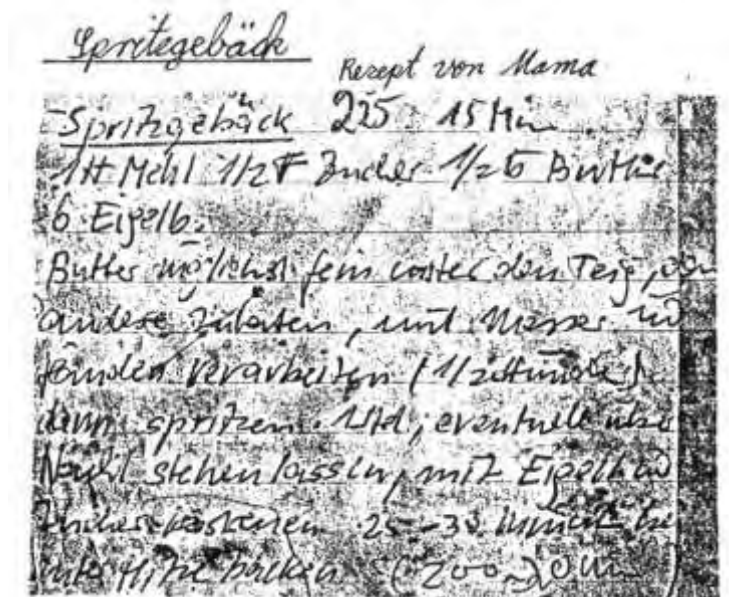 Spritzgebäck
Rezept von Mama
Spritzgebäck 225 15 Min
1 tt Mehl 1/2 Zucker 1/2 Butter
6 Eigelb.
Butter möglichst fein unter den Teig,
andere Zutaten, mit Messer
verarbeiten (1/2 Stunde)
dann spritzen. eventuell über
Nacht stehen lassen, mit Eigelb
Zucker 25-30
Hitze backen (200